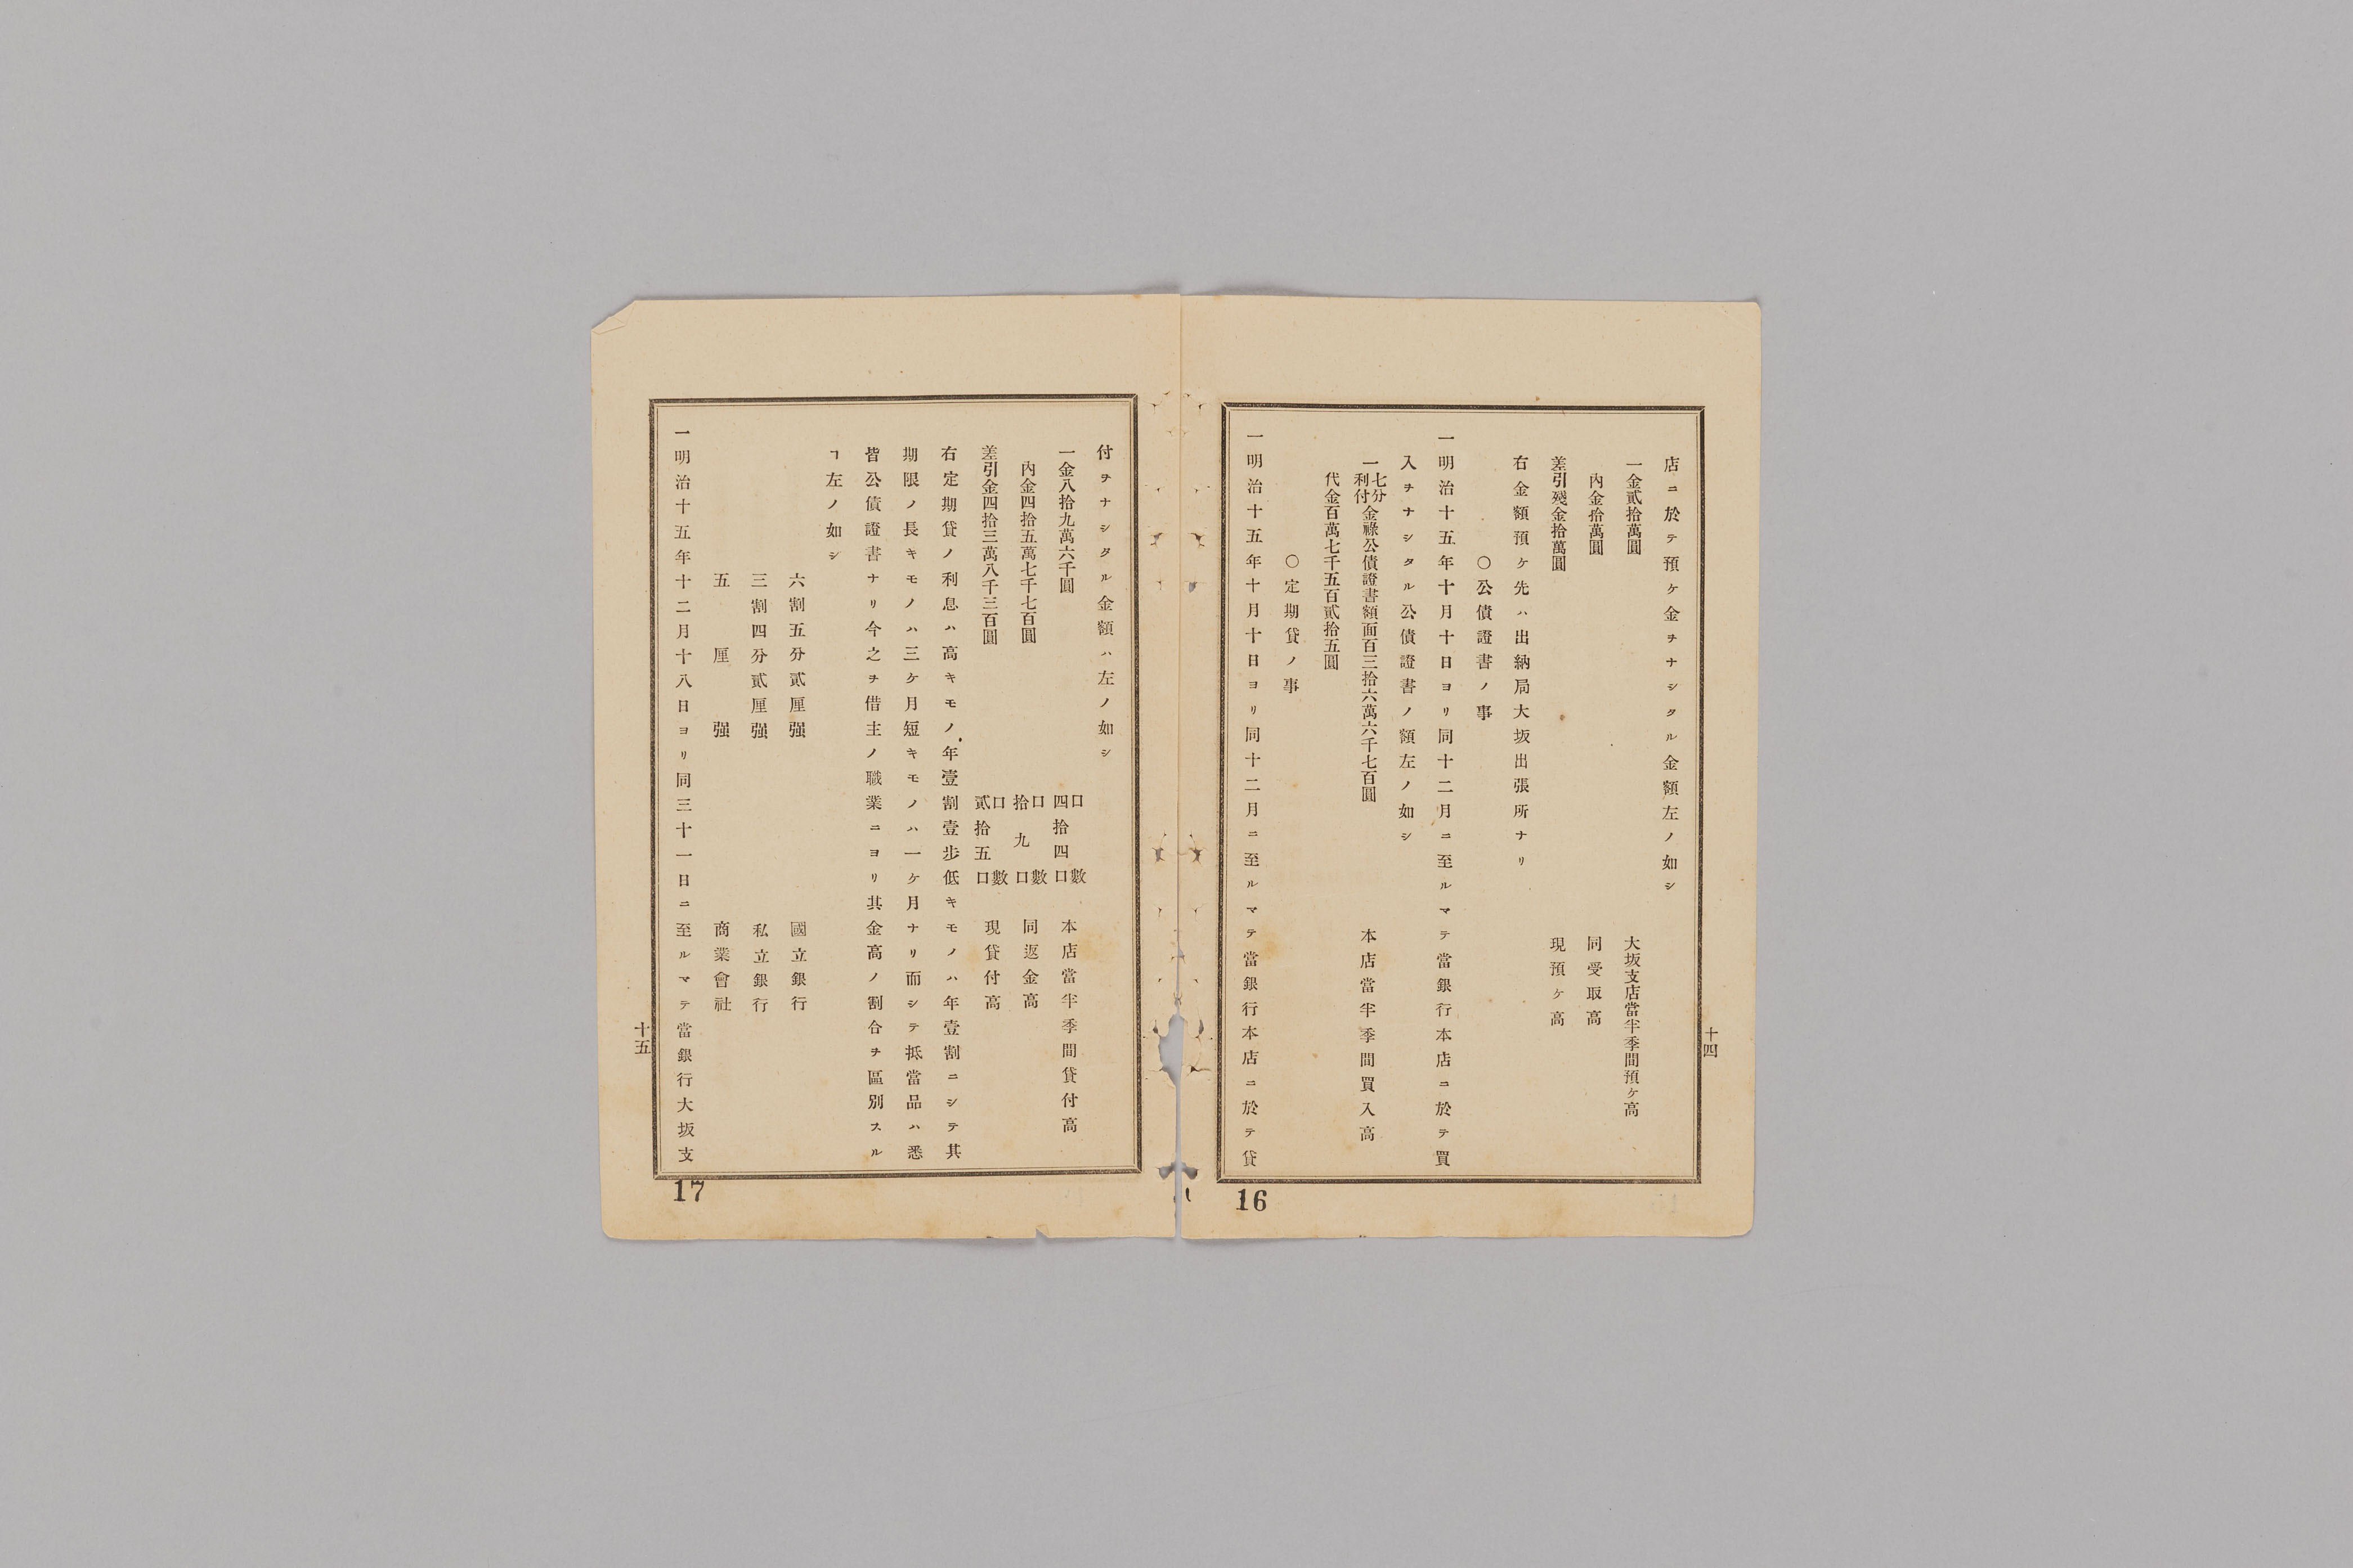 店ニ於テ預ケ金ヲナシタル金額左ノ如シ
一金貳拾萬圓　大坂支店當半季間預ケ高
內金拾萬圓　同受取高
差引殘金拾萬圓　現預ケ高
右金額預ケ先ハ出納局大坂出張所ナリ
〇公債證書ノ事
一明治十五年十月十日ヨリ同十二月ニ至ルマテ當銀行本店ニ於テ買
入ヲナシタル公債證書ノ額左ノ如シ
一七分利付金祿公債證書額面百三拾六萬六千七百圓　本店當半季間買入高
代金百萬七千五百貳拾五圓
〇定期貸ノ事
一明治十五年十月十日ヨリ同十二月ニ至ルマテ當銀行本店ニ於テ貸
十四
16
付ヲナシタル金額ハ左ノ如シ
一金八拾九萬六千圓　口數四拾四口　本店當半季間貸付高
內金四拾五萬七千七百圓　口數拾九口　同返金高
差引金四拾三萬八千三百圓　口數貳拾五口　現貸付高
右定期貸ノ利息ハ高キモノ年壹割壹步低キモノハ年壹割ニシテ其
期限ノ長キモノハ三ケ月短キモノハ一ケ月ナリ而シテ抵當品ハ悉
皆公債證書ナリ今之ヲ借主ノ職業ニヨリ其金高ノ割合ヲ區別スル
ヿ左ノ如シ
六割五分貳厘强　國立銀行
三割四分貳厘强　私立銀行
五厘强　商業會社
一明治十五年十二月十八日ヨリ同三十一日ニ至ルマテ當銀行大坂支
十五
17